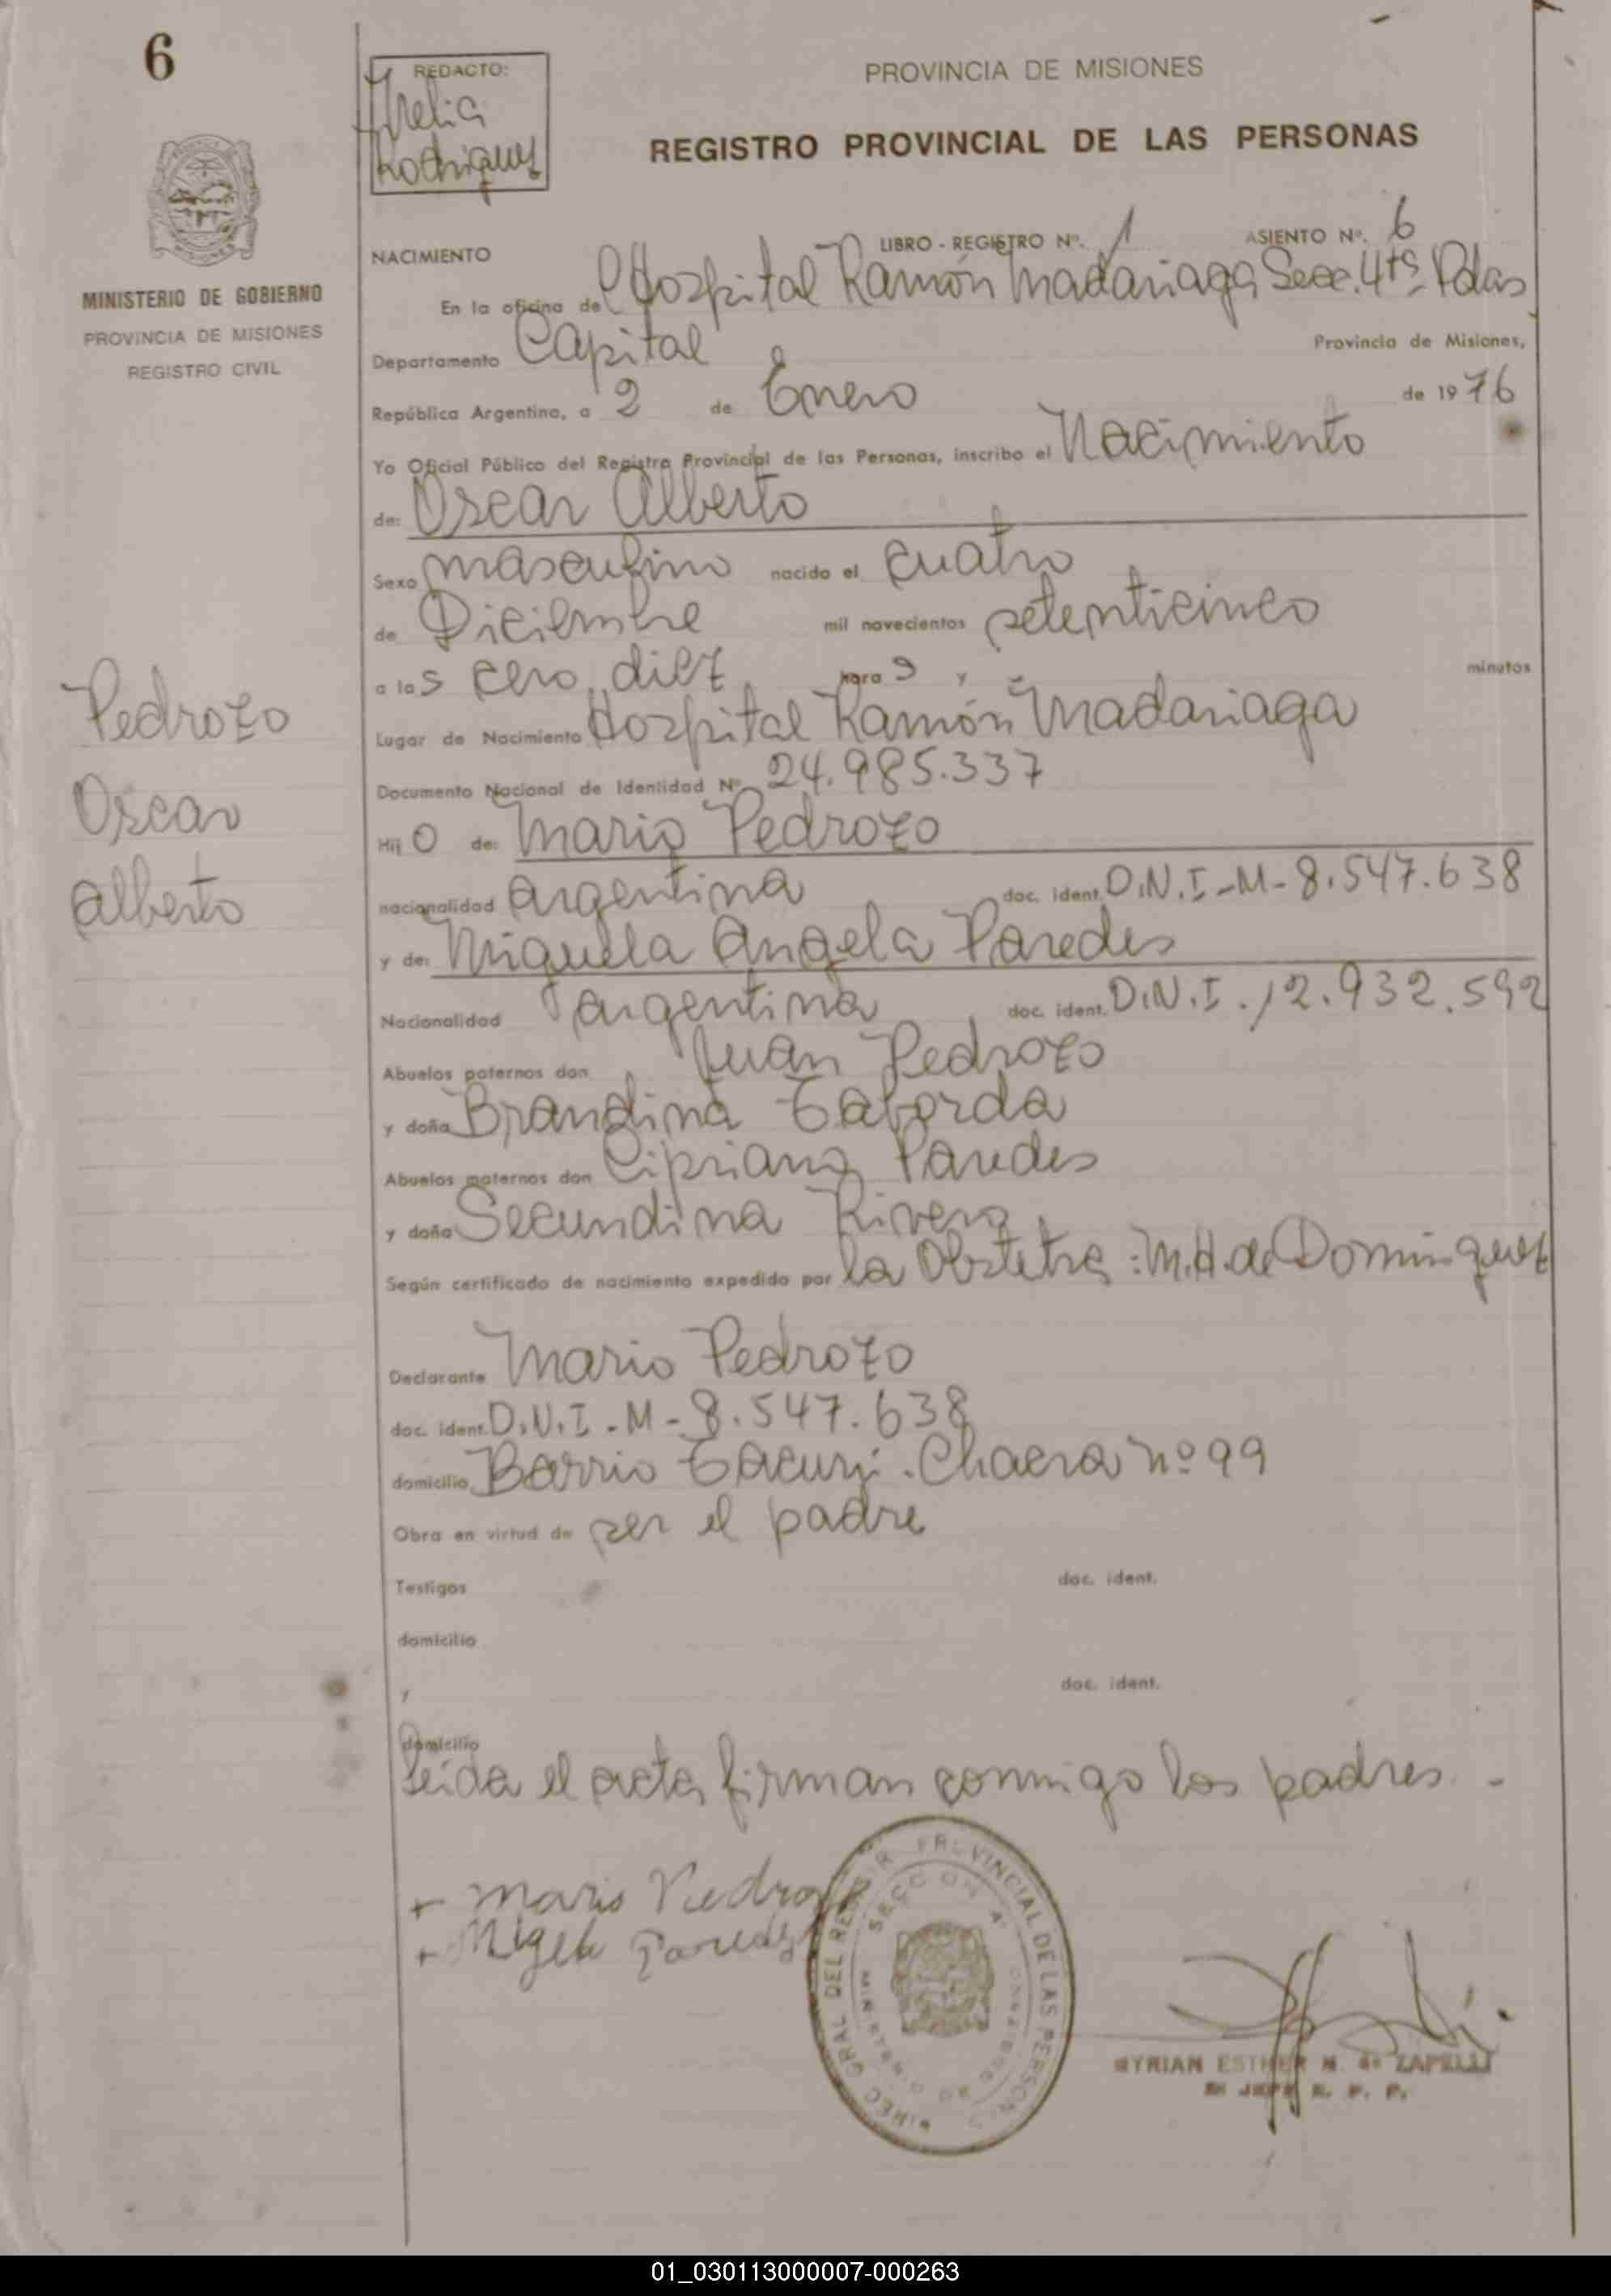 6
REDACTO:
Rodriguez
PROVINCIA DE MISIONES
REGISTRO PROVINCIAL DE LAS PERSONAS
MINISTERIO DE GOBIERNO
PROVINCIA DE MISIONES
REGISTRO CIVIL
NACIMIENTO LIBRO - REGISTRO Nº. 1 ASIENTO Nº. 6
En la oficina del Hospital Ramón Madariaga Secc. 4ta Pdas
Departamento Capital Provincia de Misiones,
República Argentina, a 2 de Enero de 1976
Yo Oficial Público del Registro Provincial de las Personas, inscribo el Nacimiento
de: Oscar Alberto
Sexo masculino nacido el cuatro
de Diciembre mil novecientos setenticinco
a las cero, diez hora s y - minutos
Lugar de Nacimiento Hospital Ramón Madariaga
Documento Nacional de Identidad Nº 24.985.337
Hijo de: Mario Pedrozo
nacionalidad argentina doc. ident. D.N.I-M-8.547.638
y de: Miguela Angela Paredes
Nacionalidad argentina doc. ident. D.N.I. 12.932.592
Abuelos paternos don Juan Pedrozo
y doña Brandina Taborda
Abuelos maternos don Cipriano Paredes
y doña Secundina Rivero
Según certificado de nacimiento expedido por la Obstetra: M.H. de Dominguez
Declarante Mario Pedrozo
doc. ident. D.N.I-M-8.547.638
domicilio Barrio Tacurú. Chacra nº 99
Obra en virtud de ser el padre
Testigos doc. ident.
domicilio
y doc. ident.
domicilio
Leida el acta, firman conmigo los padres. -
Pedrozo
Oscar
Alberto
+ Mario Pedrozo
+ Migela Paredes
DIREC. GRAL. DEL REGISTR. PROVINCIAL DE LAS PERSONAS
SECCION 4ª
MINISTERIO DE GOBIERNO
MYRIAN ESTHER N. de ZAPELLI
R. P. P.
01_030113000007-000263